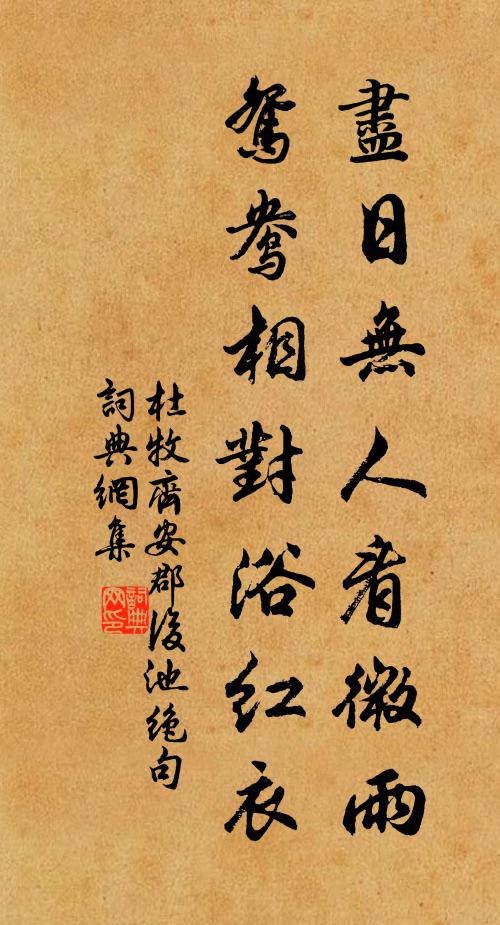 盡日無人看微雨
鴛鴦相對浴紅衣
杜牧齊安郡後池絶句
詞典網集
詞典网印